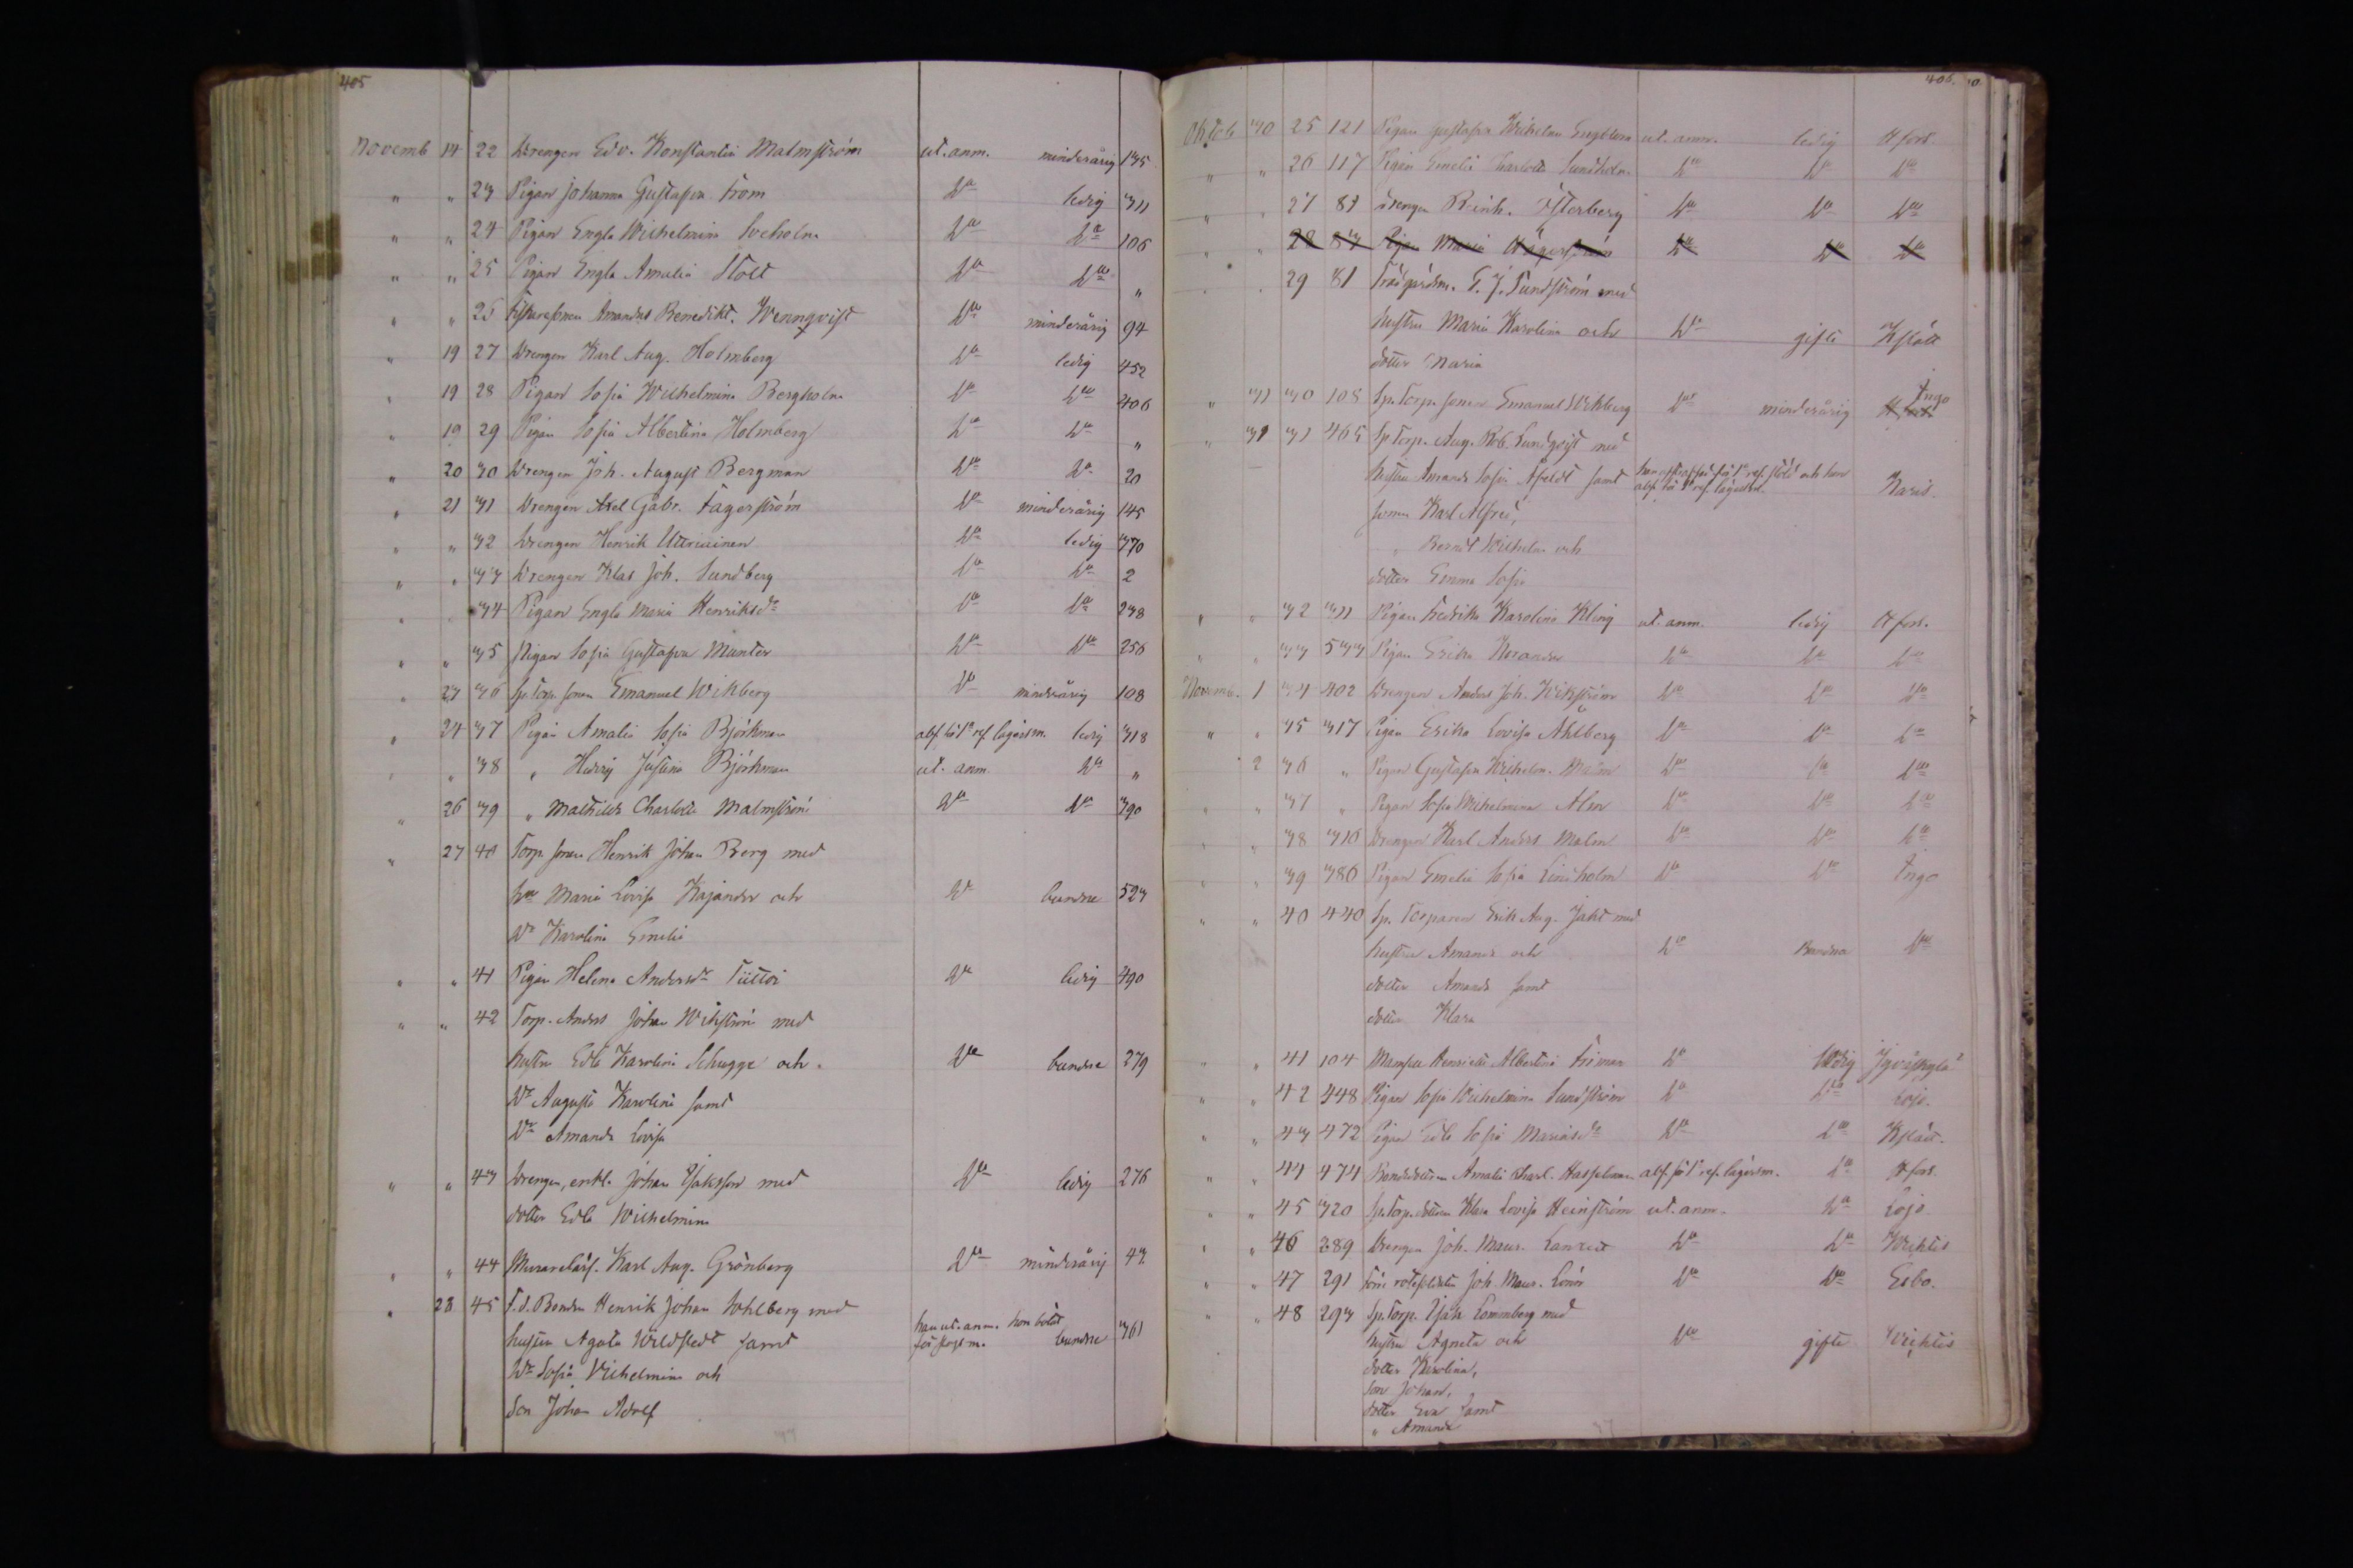 405
Novemb 14 22 Drengen Edv. Konstantin Malmström ut. anm. minderårig 135
" " 23 Pigan Johanna Gustafva From Do ledig 311
" " 24 Pigan Engla Wilhelmina Do Do 106
" " 25 Pigan Engla Amalia Stolt Do Do "
" " 26 Amandus Benedikt. Wennqvist Do minderårig 94
" 19 27 Drengen Karl Aug. Holmberg Do ledig 452
" 19 28 Pigan Sofia Wilhelmina Bergholm Do Do 406
" 19 29 Pigan Sofia Albertina Holmberg Do Do "
" 20 30 Drengen Joh. August Bergman Do Do 20
" 21 31 Drengen Axel Gabr. Fagerström Do minderårig 145
" " 32 Drengen Henrik Uttriainen Do ledig 370
" " 33 Drengen Klas Joh. Sundberg Do Do 2
" " 34 Pigan Engla Maria Henriksdr Do Do 238
" " 35 Pigan Sofia Gustafva Munter Do Do 256
" 23 36 Sp. Torp. sonen Emanuel Wikberg Do minderårig 108
" 24 37 Pigan Amalia Sofia Björkman abs. för 1a ref. lägersm. ledig 318
" " 38 " Hedvig Justina Björkman ut. anm. Do "
" 26 39 " Mathilda Charlotta Malmström Do Do 390
" 27 40 Torp. sonen Henrik Johan Berg med
Hu Maria Lovisa Kajander och Do bundne 523
Dr Karolina Emelia
" " 41 Pigan Helena Andersdr Tiittoi Do ledig 490
" " 42 Torp. Anders Johan Wikström med
hustru Edla Karolina Schugge och Do bundne 279
Dr Augusta Karolina samt
Dr Amanda Lovisa
" " 43 Drengen, enkl. Johan Isaksson med Do ledig 276
dotter Edla Wilhelmina
" " 44 Murarelärl. Karl Aug. Grönberg Do minderårig 43
" 28 45 F.d. Bonden Henrik Johan Sohlberg med
hustru Agata Wildstedt samt han ut. anm. hon bötat för bundne 361
Dr Sofia Vilhelmina och
Son Johan Adolf
406.
Oktob 30 25 121 Pigan Gustafva Wilhelmina Engblom ut. anm. ledig Hfors.
" " 26 117 Pigan Emelie Charlotta Sundholm Do Do Do
" " 27 81 Drengen Reinh. Österberg Do Do Do
" " 28 83 Pigan Maria Hägerström Do Do Do
" " 29 81 Trädgårdsm. F. J. Sundström med
hustru Maria Karolina och Do gifte Kslätt
dotter Maria
" 31 30 108 Sp. Torp. sonen Emanuel Wikberg Do minderårig Hfors. Ingo
" 31 31 465 Sp. Torp. Aug. Rob. Lundqvist med
hustru Amanda Sofia Åfeldt samt Karis.
sonen Karl Alfred,
" Berndt Wilhelm och
dotter Emma Sofia
" " 32 311 Pigan Fredrika Karolina Kling ut. anm. ledig Hfors.
" " 33 533 Pigan Erika Norander Do Do Do
Novemb. 1 34 402 Drengen Anders Joh. Wikström Do Do Do
" " 35 317 Pigan Erika Lovisa Åhlberg Do Do Do
" 2 36 " Pigan Gustafva Wilhelm. Malm Do Do Do
" " 37 " Pigan Sofia Wilhelmina Alm Do Do Do
" " 38 316 Drengen Karl Anders Malm Do Do Do
" " 39 386 Pigan Emelie Sofia Lindholm Do Do Ingo
" " 40 440 Sp. Torparen Erik Aug. Jakt med
hustru Amanda och Do Bundna Do
dotter Amanda samt
dotter Klara
" " 41 104 Mamsell Henriette Albertina Friman Do ledig Jyväskylä
" " 42 448 Pigan Sofia Wilhelmina Sundström Do Do Lojo.
" " 43 472 Pigan Edla Sofia Mariasdr Do Do Kslätt.
" " 44 474 Bondedottren Amalia Charl. Hasselman abs. för 1a ref. lägersm. Do Hfors.
" " 45 320 Sp. Torp. dottren Klara Lovisa Heinström ut. anm. Do Lojo
" " 46 289 Drengen Joh. Maur. Do Do Wichtis
" " 47 291 Förre rotesoldaten Joh. Maur. Lönn Do Do Esbo.
" " 48 293 Sp. Torp. Isak Lommberg med
hustru Agneta och Do gifte Wichtis
dotter Karolina,
son Johan,
dotter Eva samt
" Amanda